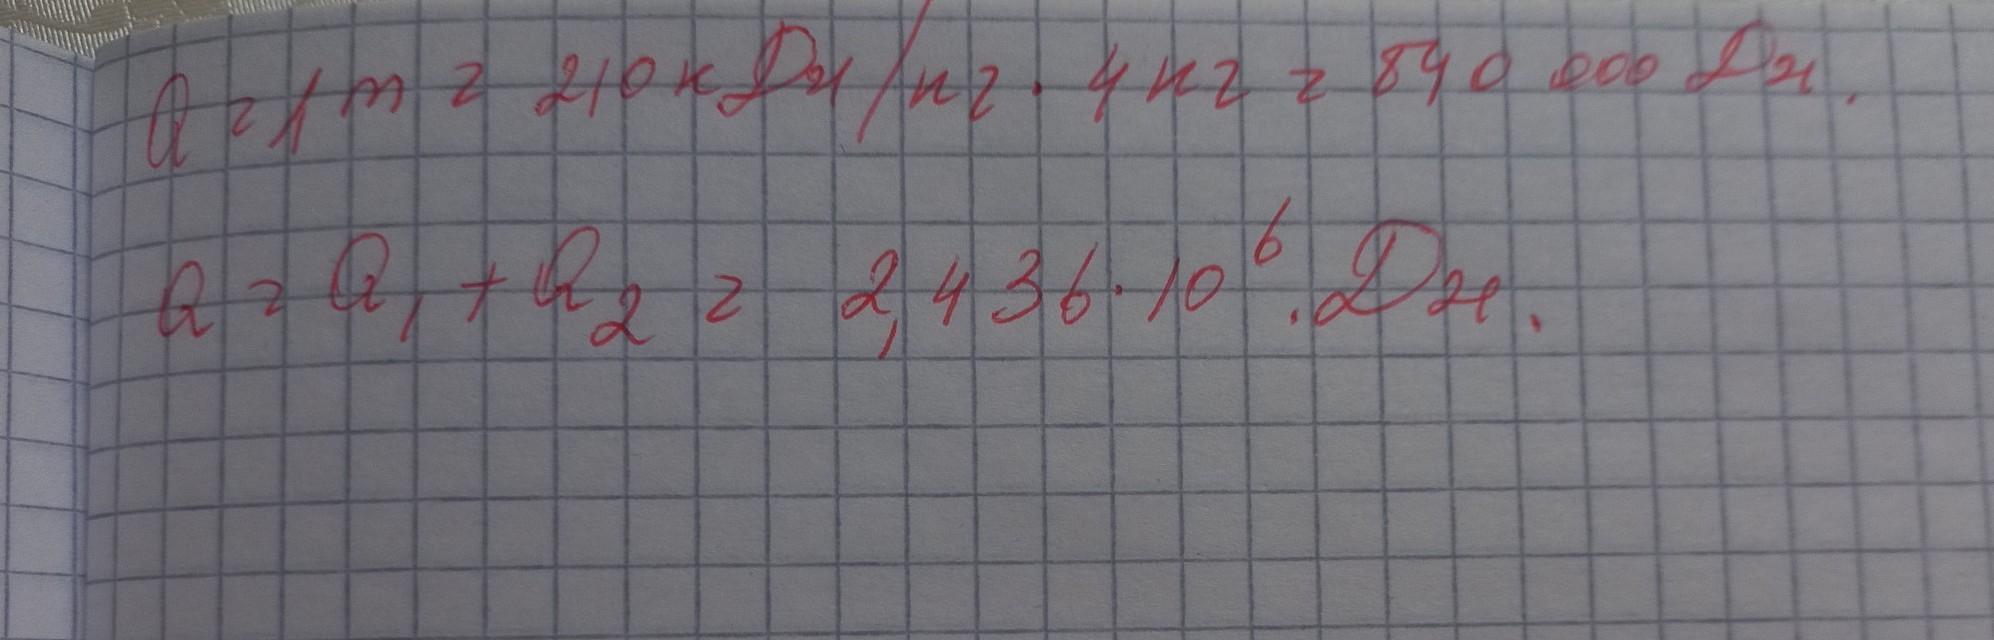 Q = λm = 210 кДж/кг · 4 кг = 840 000 Дж.
Q = Q₁ + Q₂ = 2,436 · 10⁶ . Дж.